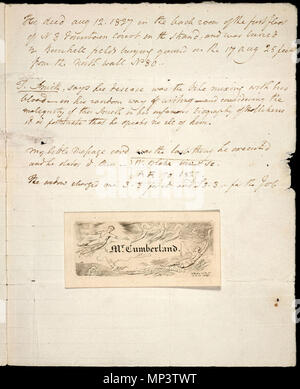 He died aug 12. 1827 in the back room of the first floor
of N 3 Fountain Court in the Strand, and was buried
in Bunhill field burying ground on the 17 aug 25 feet
from the north wall No 80.
T. Smith. says his disease was the bile mixing with his
blood in his random way of writing and considering the
malignity of this Smith in his infamous biography of Nollekens
it is fortunate that he speaks no ill of him.
My little message card was the last thing he executed
and he dates it thus W Blake inv & sc.
A Æ 70 1827
The widow charged me 3.3 for it and 3.3 for the Job
Mr Cumberland.
alamy
Image ID: MP3TWT
www.alamy.com